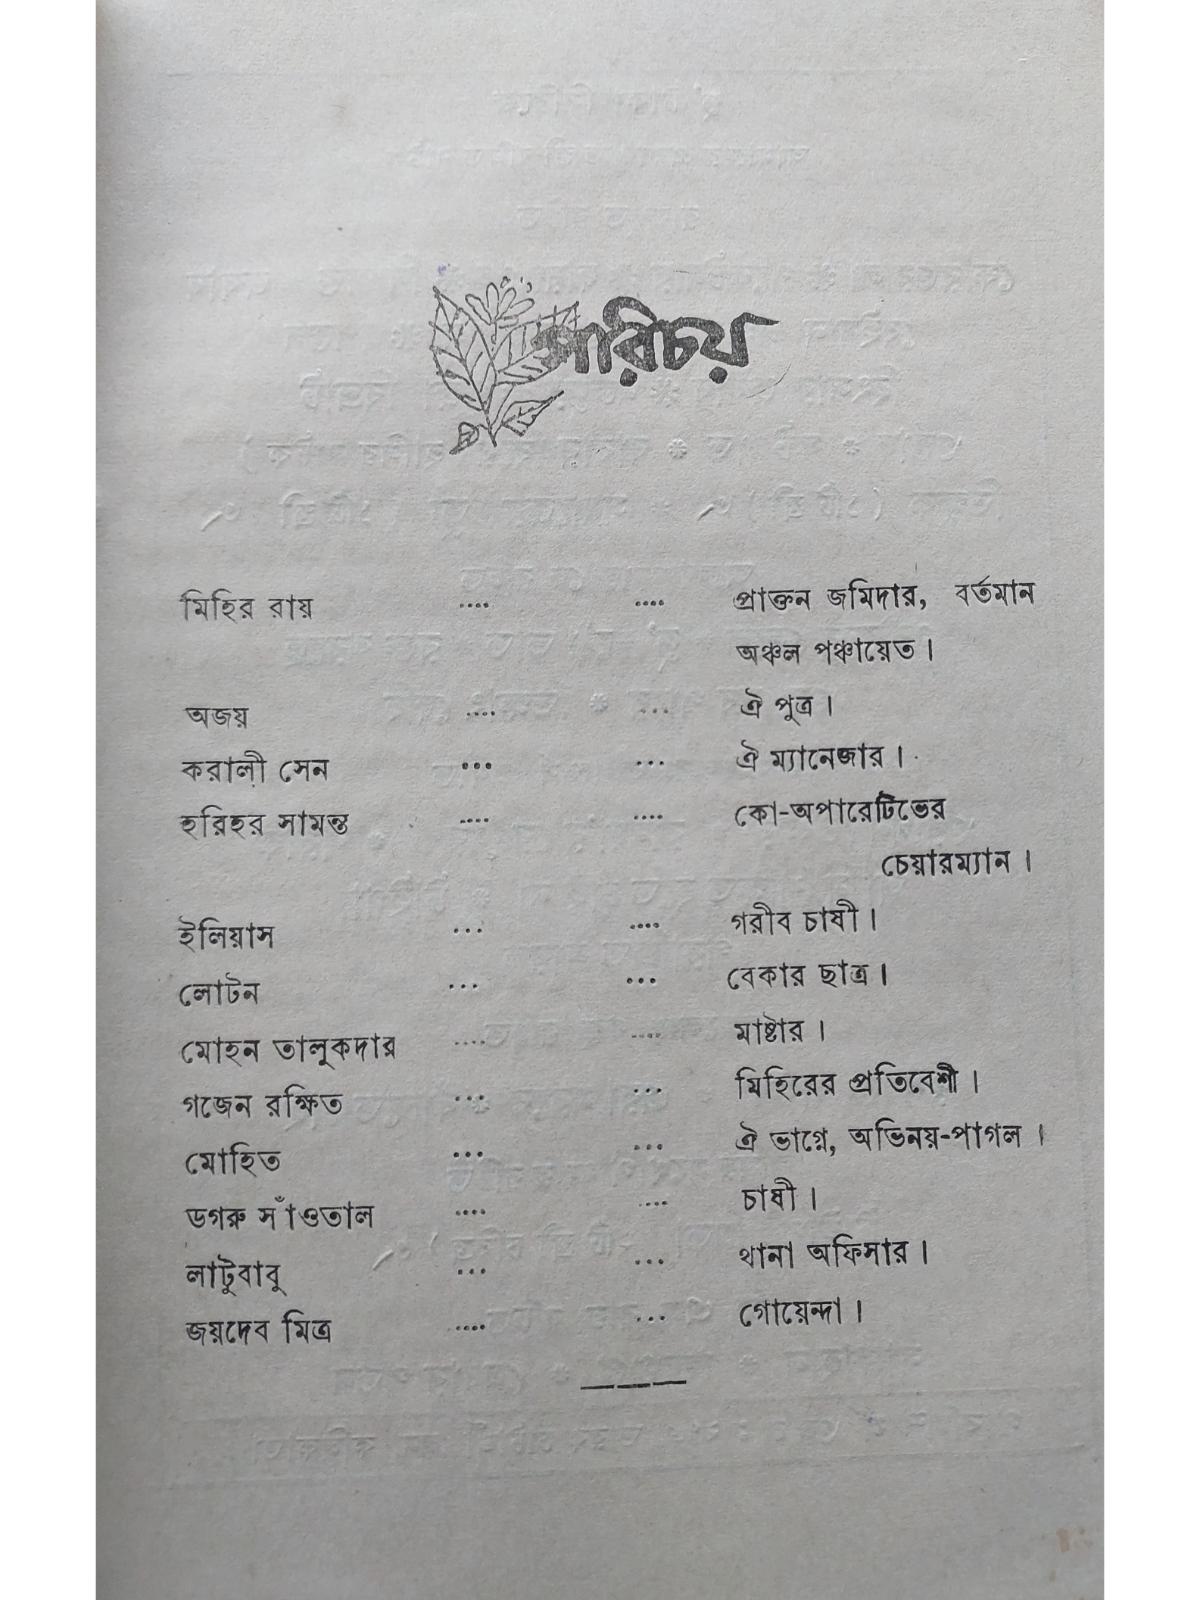 পরিচয়
মিহির রায় .... .... প্রাক্তন জমিদার, বর্তমান
অঞ্চল পঞ্চায়েত।
অজয় .... ... ঐ পুত্র।
করালী সেন ... ... ঐ ম্যানেজার।
হরিহর সামন্ত .... .... কো-অপারেটিভের
চেয়ারম্যান।
ইলিয়াস ... .... গরীব চাষী।
লোটন ... ... বেকার ছাত্র।
মোহন তালুকদার .... .... মাষ্টার।
গজেন রক্ষিত ... ... মিহিরের প্রতিবেশী।
মোহিত ... ... ঐ ভাগ্নে, অভিনয়-পাগল।
ডগরু সাঁওতাল .... .... চাষী।
লাটুবাবু ... ... থানা অফিসার।
জয়দেব মিত্র .... ... গোয়েন্দা।